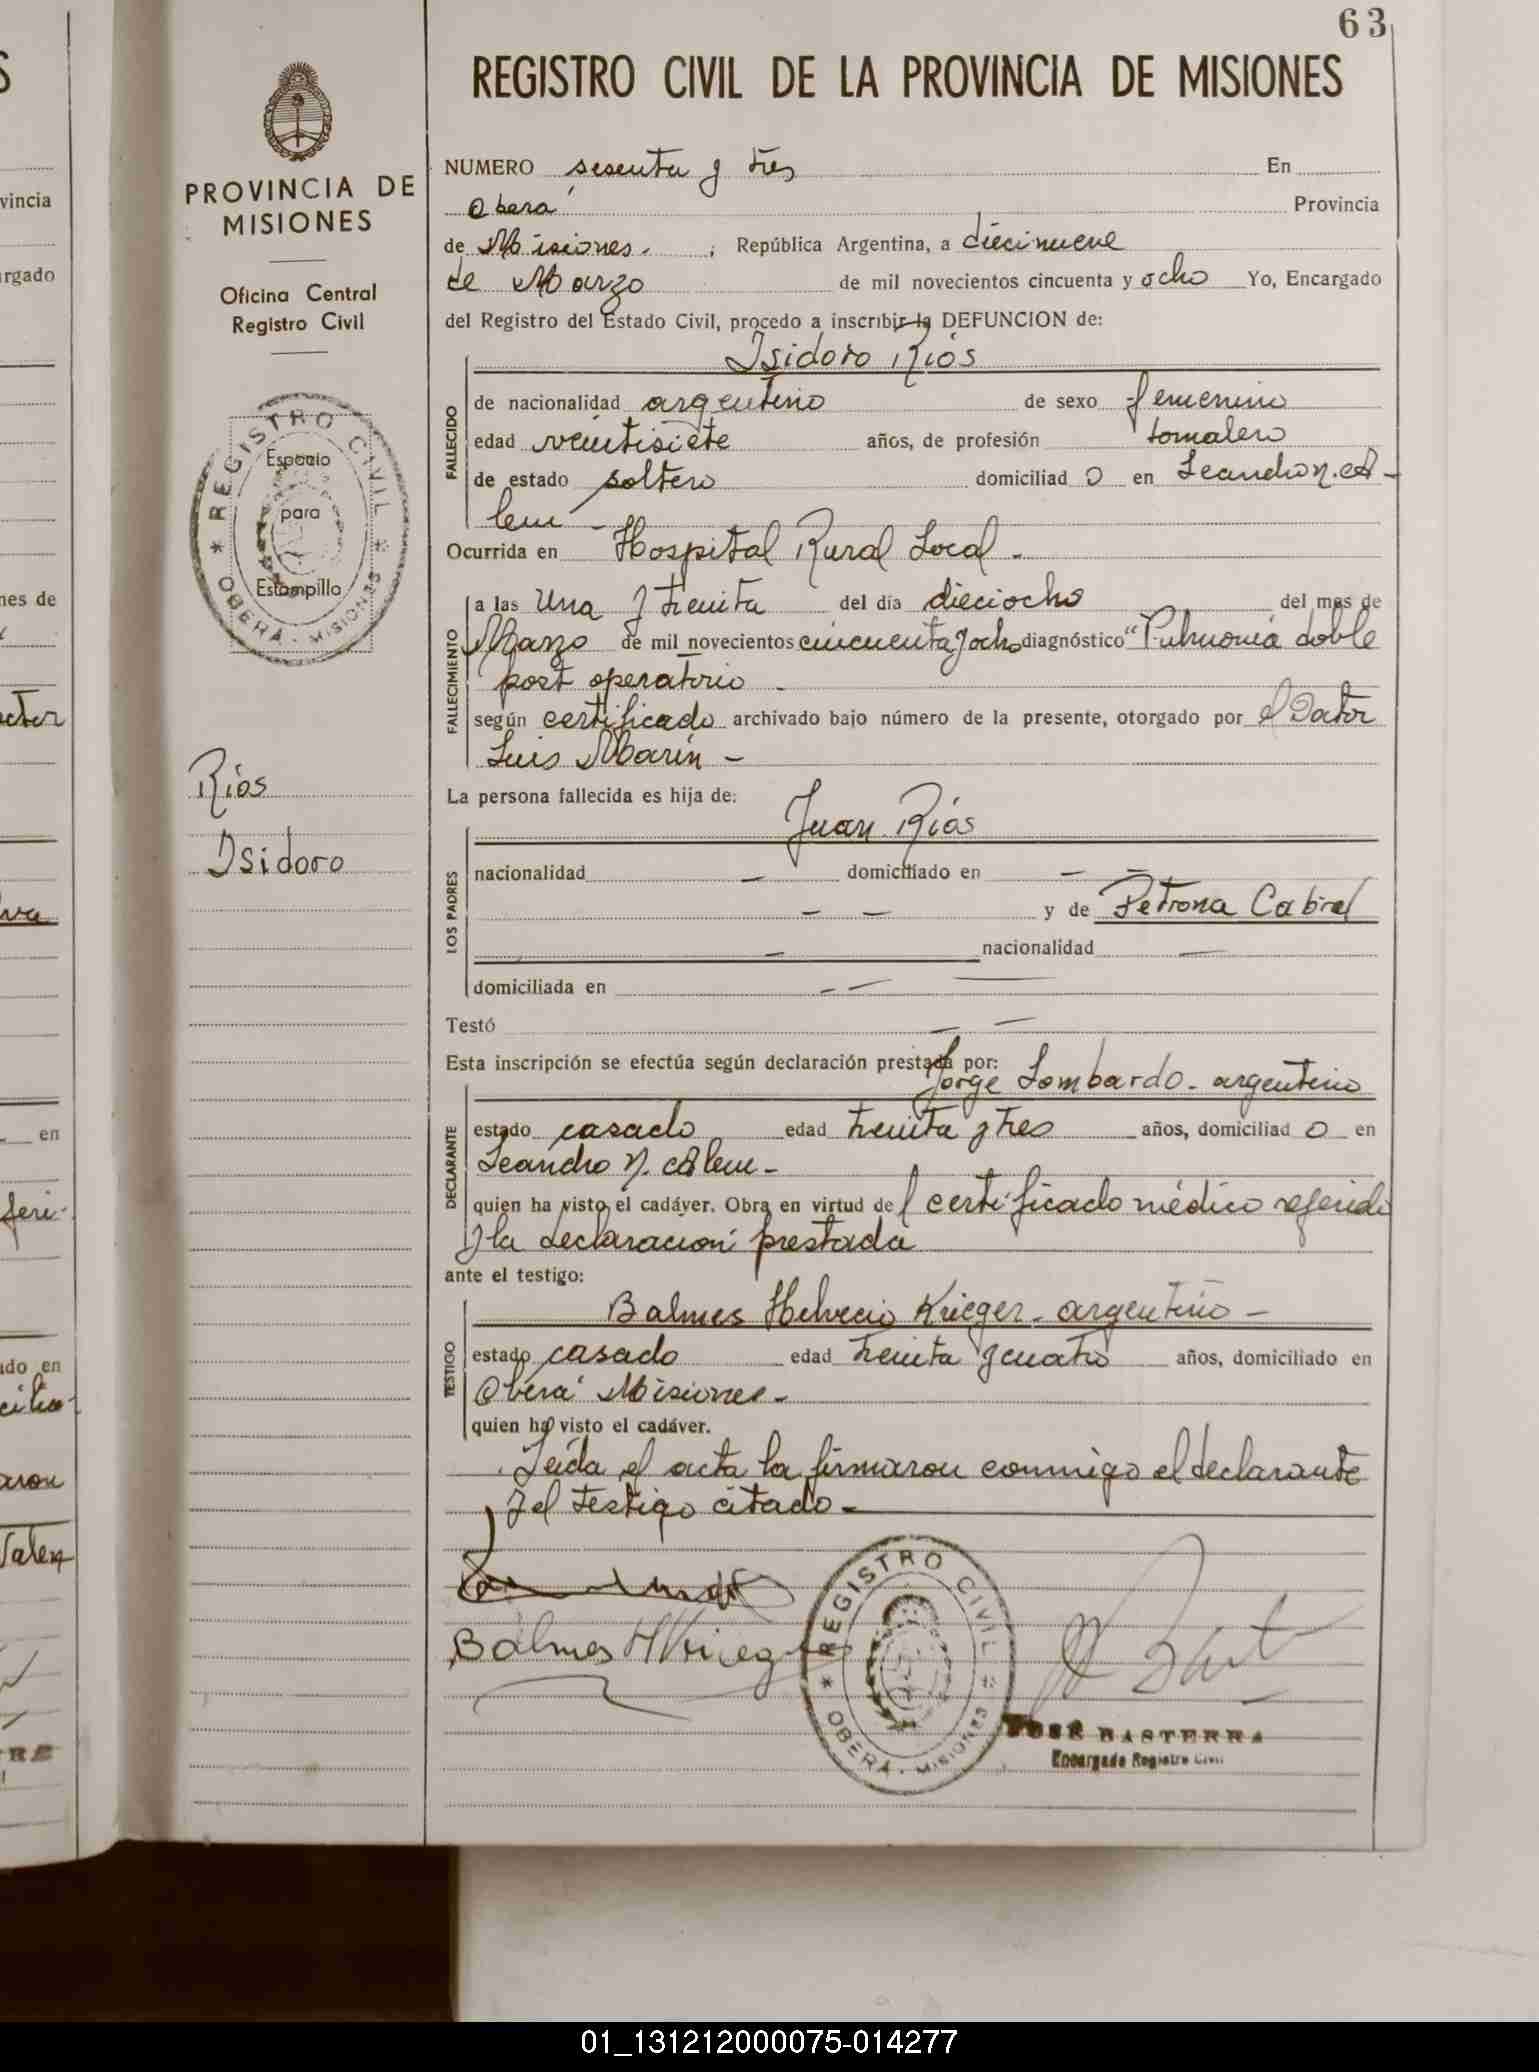 63
REGISTRO CIVIL DE LA PROVINCIA DE MISIONES
PROVINCIA DE
MISIONES
Oficina Central
Registro Civil
REGISTRO CIVIL
Espacio
para
Estampilla
OBERÁ - MISIONES
Ríos
Isidoro
NUMERO sesenta y tres En
Oberá Provincia
de Misiones. ; República Argentina, a diecinueve
de Marzo de mil novecientos cincuenta y ocho Yo, Encargado
del Registro del Estado Civil, procedo a inscribir la DEFUNCION de:
Isidoro Ríos
FALLECIDO
de nacionalidad argentino de sexo femenino
edad veintisiete años, de profesión jornalero
de estado soltero domiciliad o en Leandro N. A-
lem -
Ocurrida en Hospital Rural Local -
FALLECIMIENTO
a las Una y treinta del día dieciocho del mes de
Marzo de mil novecientos cincuenta y ocho diagnóstico "Pulmonía doble
post operatorio -
según certificado archivado bajo número de la presente, otorgado por el Doctor
Luis Marín -
La persona fallecida es hija de:
LOS PADRES
Juan Ríos
nacionalidad - domiciliado en - -
- - y de Petrona Cabral
- nacionalidad -
domiciliada en - -
Testó - -
Esta inscripción se efectúa según declaración prestada por:
DECLARANTE
Jorge Lombardo - argentino
estado casado edad treinta y tres años, domiciliad o en
Leandro N. Alem -
quien ha visto el cadáver. Obra en virtud del certificado médico referido
y la declaración prestada
ante el testigo:
TESTIGO
Balmes Helvecio Krieger - argentino -
estado casado edad treinta y cuatro años, domiciliado en
Oberá Misiones -
quien ha visto el cadáver.
Leída el acta la firmaron conmigo el declarante
y el testigo citado -
Balmes H Krieger
REGISTRO CIVIL
OBERÁ - MISIONES
JOSÉ BASTERRA
Encargado Registro Civil
vincia
argado
nes de
en
ado en
aron
Valen
01_131212000075-014277